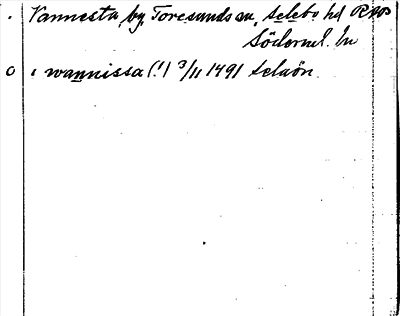 . Vannesta, by, Toresunds sn, selebo hd
Söderml. ln
o i wannissa (!) 3/11 1491 selaön.